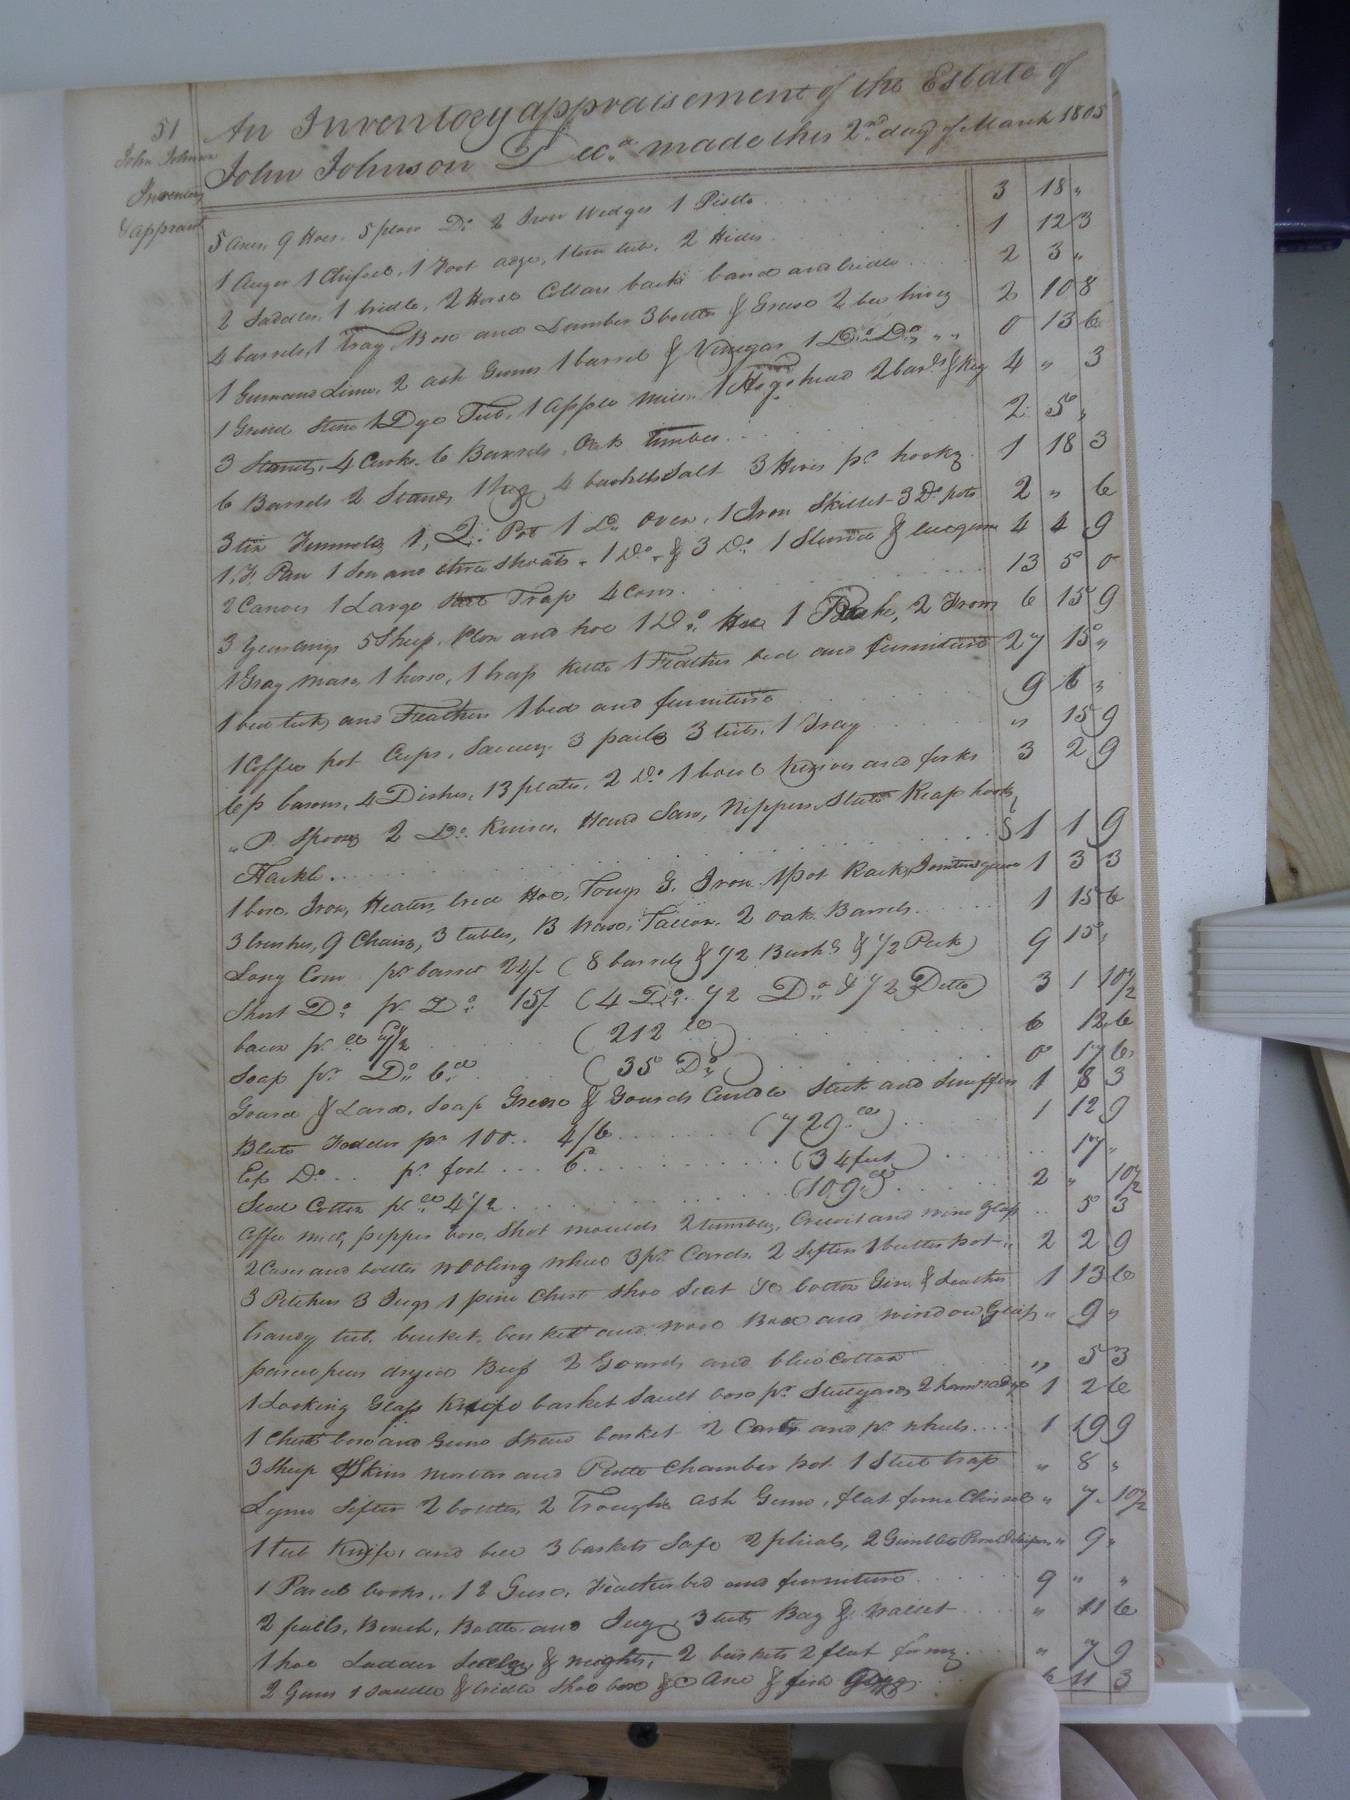 51
John Johnson
Inventory
& apprasmt
An Inventory appraisement of the Estate of
John Johnson Decd. made this 2nd. day of March 1805
5 axes, 9 Hoes, 5 plow Do 2 Iron Wedges 1 Pistle 3 18 "
1 Auger 1 Chissel, 1 Foot adge, 1 tub, 2 Hides 1 12 3
2 Saddles, 1 bridle, 2 Horse Collars back band and bridle 2 3 "
4 barrels, 1 Tray Box and Lumber 3 bottles of Grease 2 bee hives 2 10 8
1 Gum and Lime, 2 ash Gums 1 barrel of Vinegar 1 Do. Do. " " 0 13 6
1 Grind Stone 1 Dye Tub, 1 apple mill 1 Hogshead 2 barls. & Keg 4 " 3
3 Stands, 4 Casks, 6 Barrels, Oak Timber 2 5 "
6 Barrels 2 Stands 1 keg 4 bushels Salt 3 Hives pr. hooks 1 18 3
3 tin 1 Pot 1 Do. oven, 1 Iron Skillet 3 Do. pots 2 " 6
1 F Pan 1 Sow and three Shoats, 1 Do. & 3 Do. 1 4 4 9
2 Canoes 1 Large Trap 4 Cows 13 5 0
3 Yearlings 5 Sheep, Plow and hoe 1 Do. Hoe 1 2 Irons 6 15 9
1 Gray mare, 1 horse, 1 brass Kettle 1 Feather bed and furniture 27 15 "
1 bed tick, and Feathers 1 bed and furniture 9 6 "
1 Coffee pot Cups, Saucers 3 pails 3 tubs, 1 Tray " 15 9
6 p basons, 4 Dishes, 13 plates, 2 Do. 1 bowl Knives and forks 3 2 9
" P. Spoons 2 Do. Knives, Hand Saw, Nippers, Reap hooks
Hackle 1 1 9
1 box, Iron, Heaters, bred Hoe, Tongs G. Iron 1 Pot Rack, 1 3 3
3 brushes, 9 Chairs, 3 tables, 2 oak Barrels 1 15 6
Long Corn pr barrel 24/- (8 barrels & 1/2 Bushs & 1/2 Peck) 9 15 "
Short Do. pr. Do. 15/- (4 Do. 1/2 Do. & 1/2 Ditto) 3 1 10 1/2
bacon pr. (212 ) 6 12 6
Soap pr. Do. 6d (35 Do.) 0 17 6
Gourd of Lard, Soap Grease & Gourds Candle Stick and Snuffers 1 8 3
Blade Fodder pr 100 4/6 (729 ) 1 12 9
Do. pr foot 6 (34 feet) 17 "
Seed Cotton pr 4 1/2 (109 ) 2 " 10 1/2
Coffee mill, pepper box, Shot moulds 2 tumblers, Cruit and wine glass 5 3
2 Cases and bottles wooling wheel 3 pr. Cards, 2 Sifters 1 butter pot 2 2 9
3 Pitchers 3 Jugs 1 pine Chest Shoe Seat cotton Gin & Leather 1 13 6
brandy tub, bucket, basket and wool Box and window Glass " 9 "
parcel peas dryed Beef 2 Gourds and blue Cotton " 5 3
1 Looking Glass Knife basket Sault box pr. Stilyards, 2 1 2 6
1 Chest box and Gums Straw basket 2 Carts and pr. wheels 1 19 9
3 Sheep Skins mortar and Pestle Chamber pot 1 Steel trap " 8 "
Lyme Sifter 2 bottles, 2 Troughs ash Gums, flat form Chissel " 7 10 1/2
1 tub Knife, and 3 baskets Safe 2 phials, 2 Gimblets " 9 "
1 Parcel books, 12 Geese, Feather bed and furniture 9 " "
2 pails, Bench, Bottle and Jug, 3 tubs Bag & wallet " 11 6
1 hoe Ladder Scales & weights, 2 baskets 2 flat forms " 7 9
2 Guns 1 saddle & bridle Shoe box & axe & fish 6 11 3